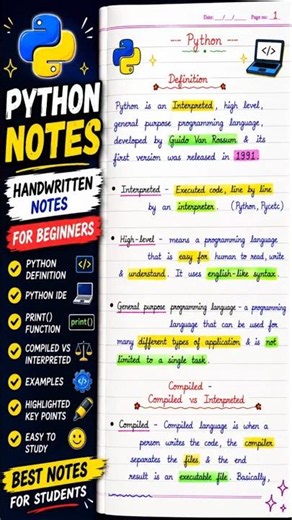 PYTHON
NOTES
HANDWRITTEN
NOTES
FOR BEGINNERS
PYTHON
DEFINITION
</>
PYTHON IDE
PRINT()
FUNCTION
print()
COMPILED VS
INTERPRETED
EXAMPLES
HIGHLIGHTED
KEY POINTS
EASY TO
STUDY
BEST NOTES
FOR STUDENTS
Date: __/__/__ Page no: 1
- Python -
</>
Definition
Python is an Interpreted, high level,
general purpose programming language,
developed by Guido Van Rossum & its
first version was released in 1991.
• Interpreted - Executed code, line by line
by an interpreter. (Python, Pycetc)
• High-level - means a programming language
that is easy for human to read, write
& understand. It uses english-like syntax.
• General purpose programming language - a programming
language that can be used for
many different types of application & is not
limited to a single task.
Compiled -
Compiled vs Interpreted
• Compiled - Compiled language is when a
person writes the code, the compiler
separates the files & the end
result is an executable file. Basically,